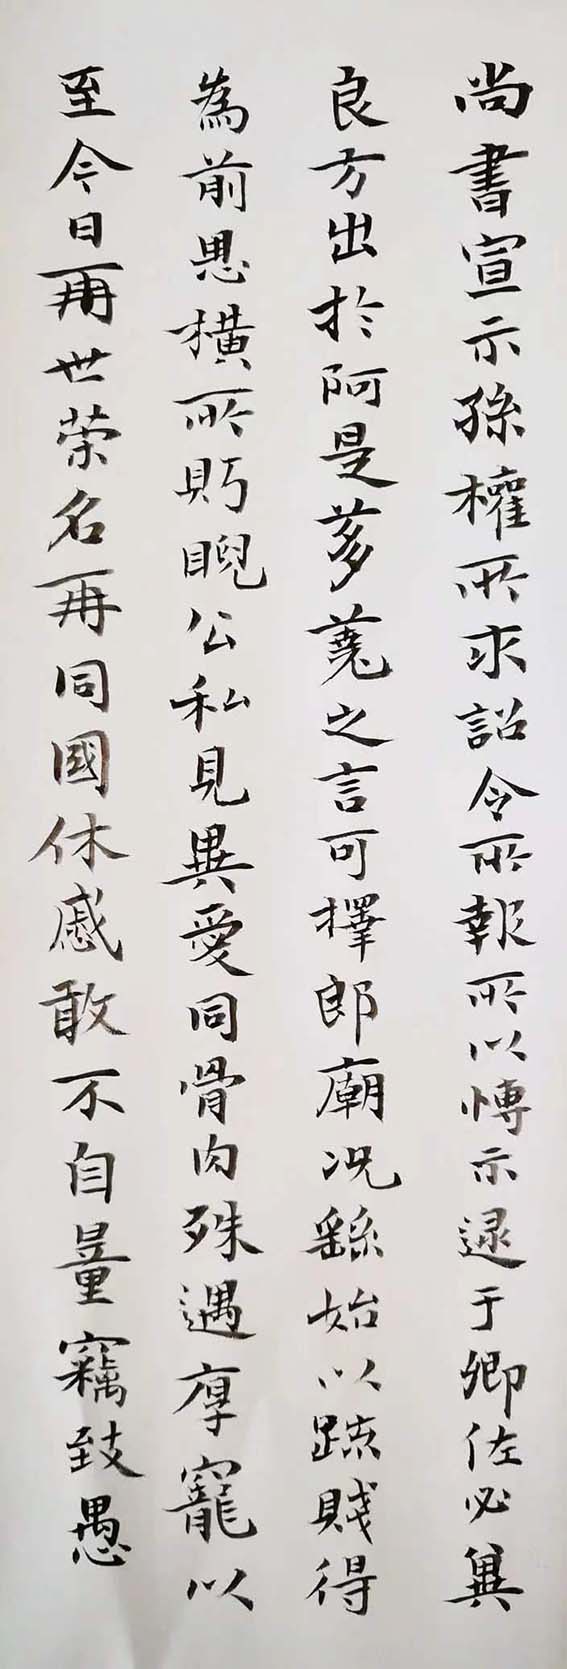 尚書宣示孫權所求詔令所報所以博示逮于卿佐必冀
良方出於阿是芻蕘之言可擇郎廟況繇始以疏賤得
為前恩橫所眄睨公私見異愛同骨肉殊遇厚寵以
至今日再世榮名再同國休慼敢不自量竊致愚